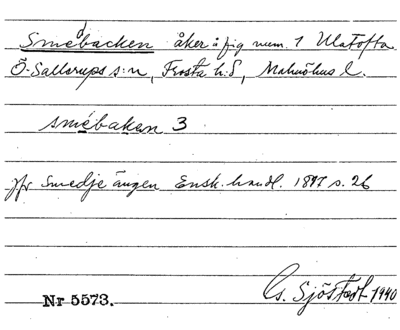 Småbacken åker å fig num. 1 Ulatofta
Ö-Sallerups s:n, Frosta h:d, Malmöhus l.
småbaken 3
jfr Smedjeängen Ensk. handl. 1877 s. 26
Nr 5573. G. Sjöstedt 1940